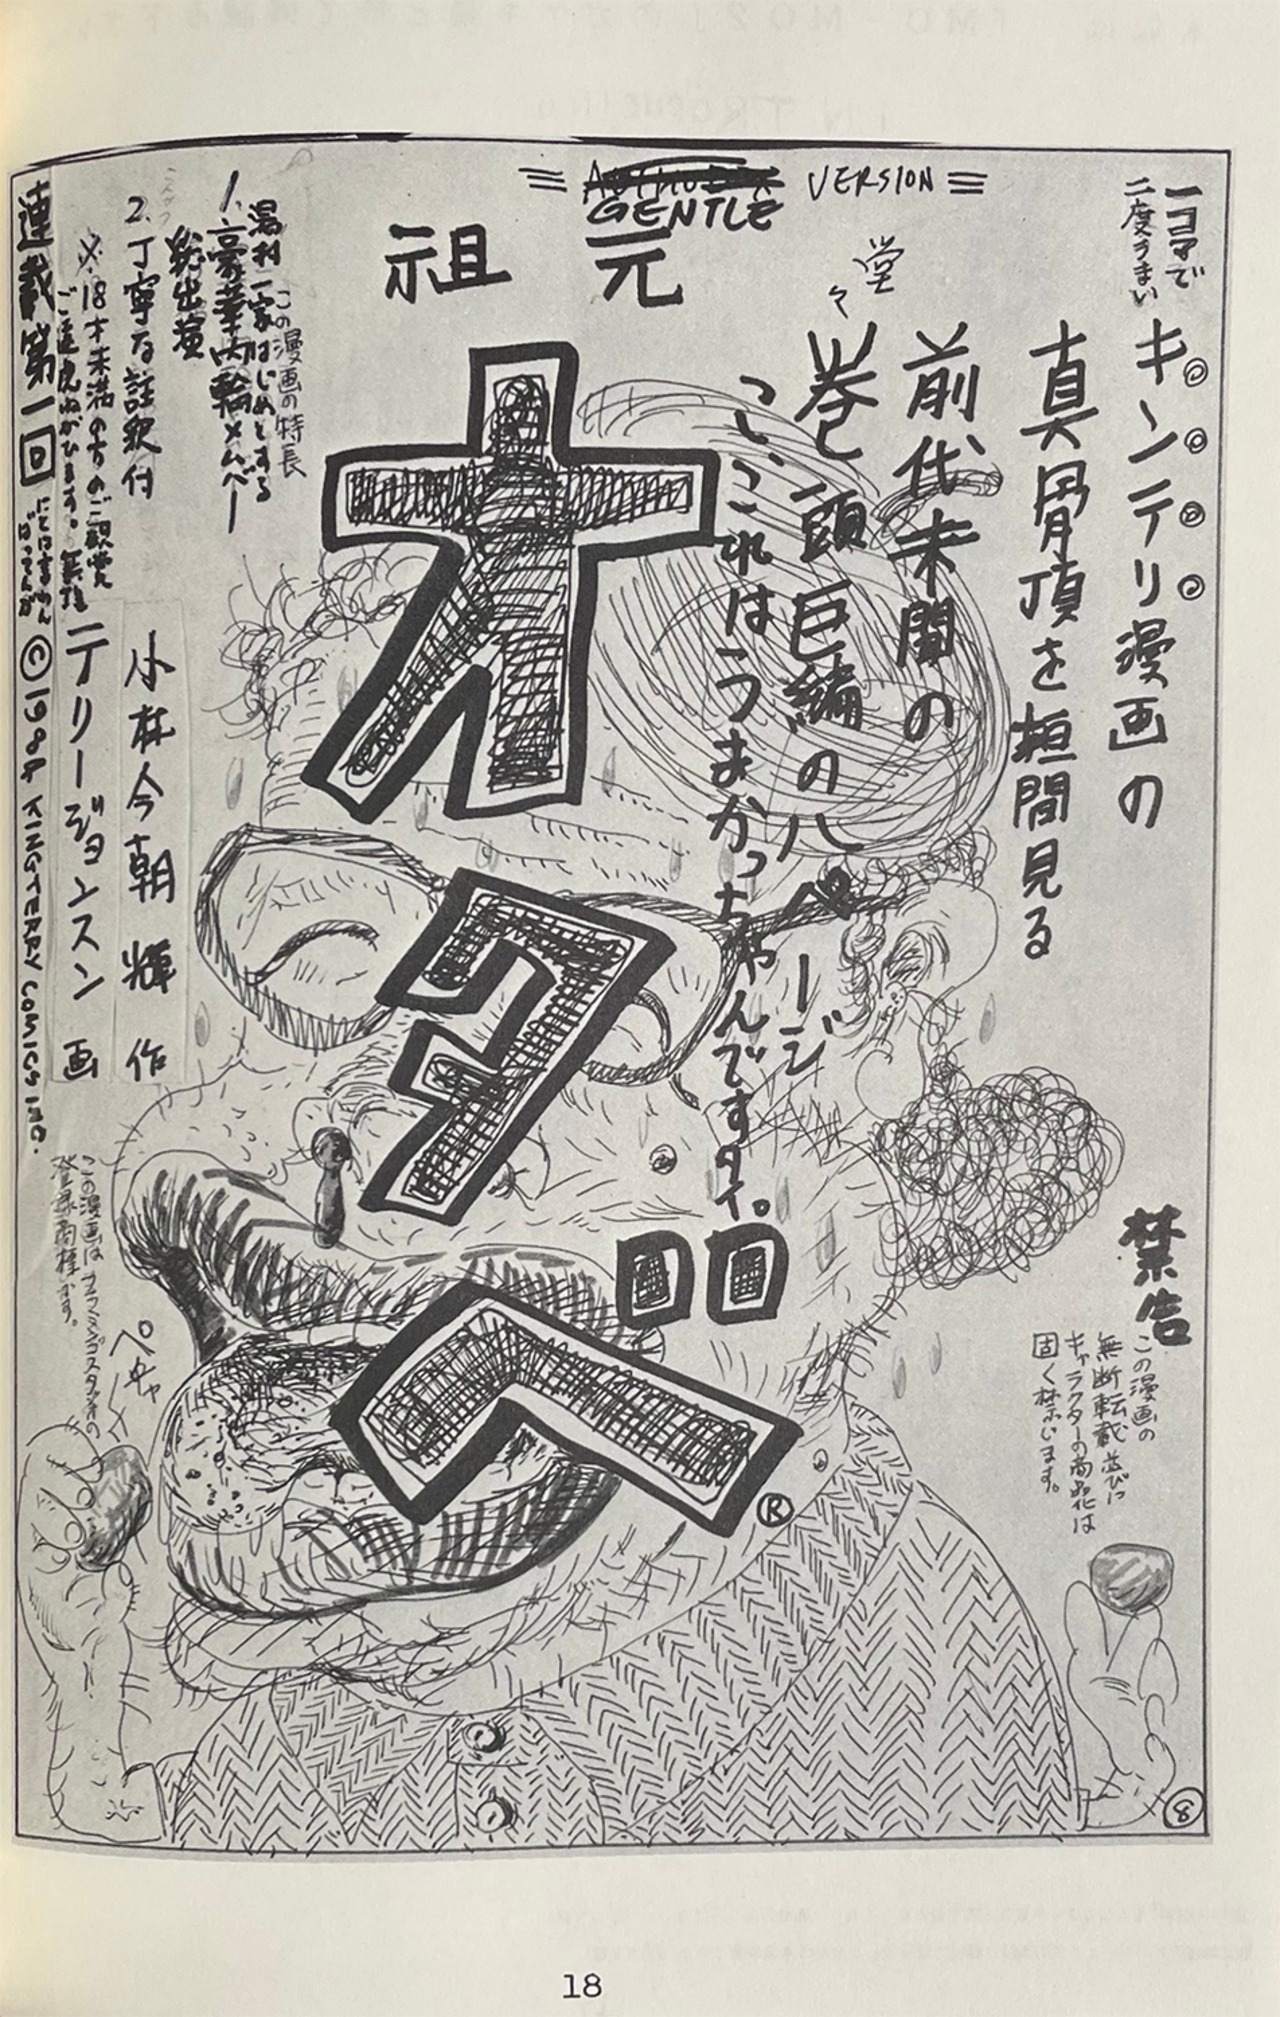 GENTLE VERSION
元祖
オタベロ
®
一コマで
二度うまい
キンテリ漫画の
真骨頂を垣間見る
前代未聞の
堂々
巻頭巨編の八ページ
こここれはうまかっちゃんですタイ。
この漫画の特長
湯村一家はじめとする
1. 豪華内輪メンバー
総出演
2. 丁寧な註釈付
※18才未満の方のご観覧
ご遠慮ねがひます。
連載第一回
小林今朝輝 作
テリージョンスン 画
©1984 KINGTERRY COMICS INC.
この漫画はフラミンゴスタジオの
登録商標です。
ペチャ
禁告
この漫画の
無断転載並びに
キャラクターの商品化は
固く禁います。
8
18